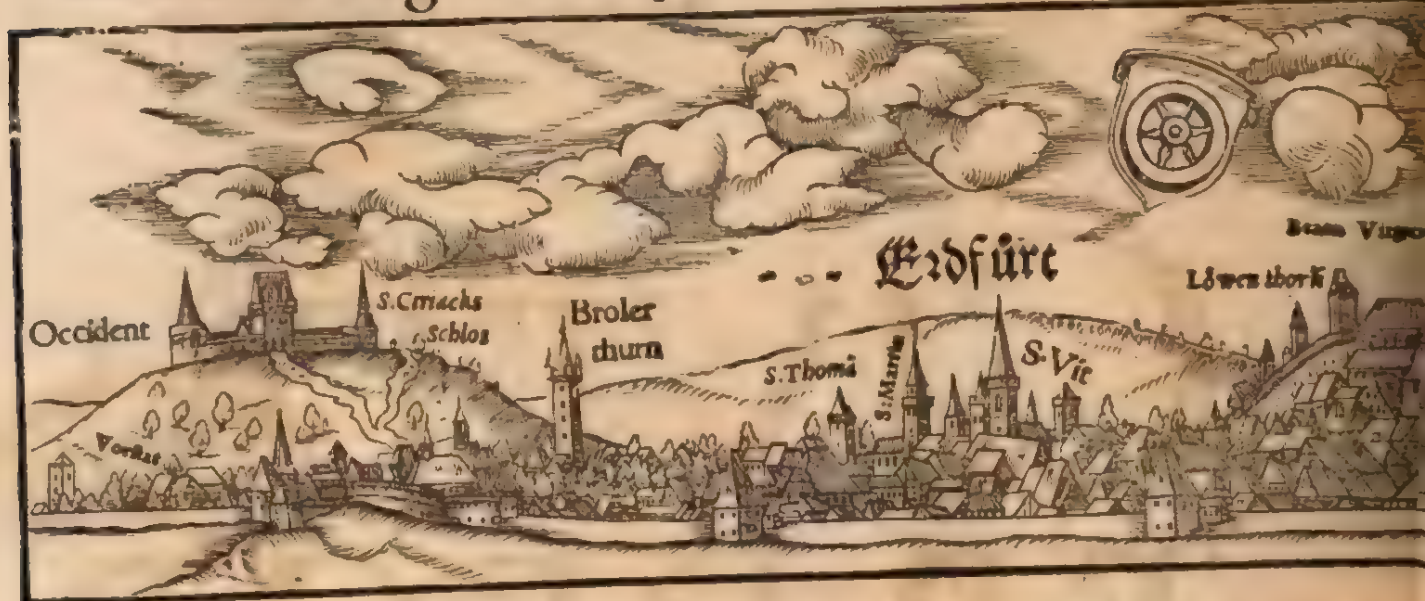 Erdfürt
Beata Virgo
Löwen thorn
Occident
S. Ciriacks
Schlos
Broler
thurn
S. Thomā
S. Martin
S. Vit
Vorstat